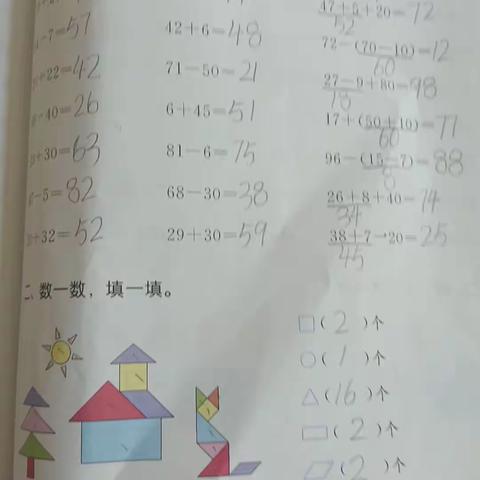 47+5+20=72
52
-7=57 42+6=48 72-(70-10)=12
60
+22=42 71-50=21 27-9+80=98
18
-40=26 6+45=51 17+(50+10)=77
60
+30=63 81-6=75 96-(15-7)=88
8
-5=82 68-30=38 26+8+40=74
34
+32=52 29+30=59 38+7-20=25
45
二、数一数，填一填。
□(2)个
○(1)个
△(16)个
▭(2)个
▱(2)个